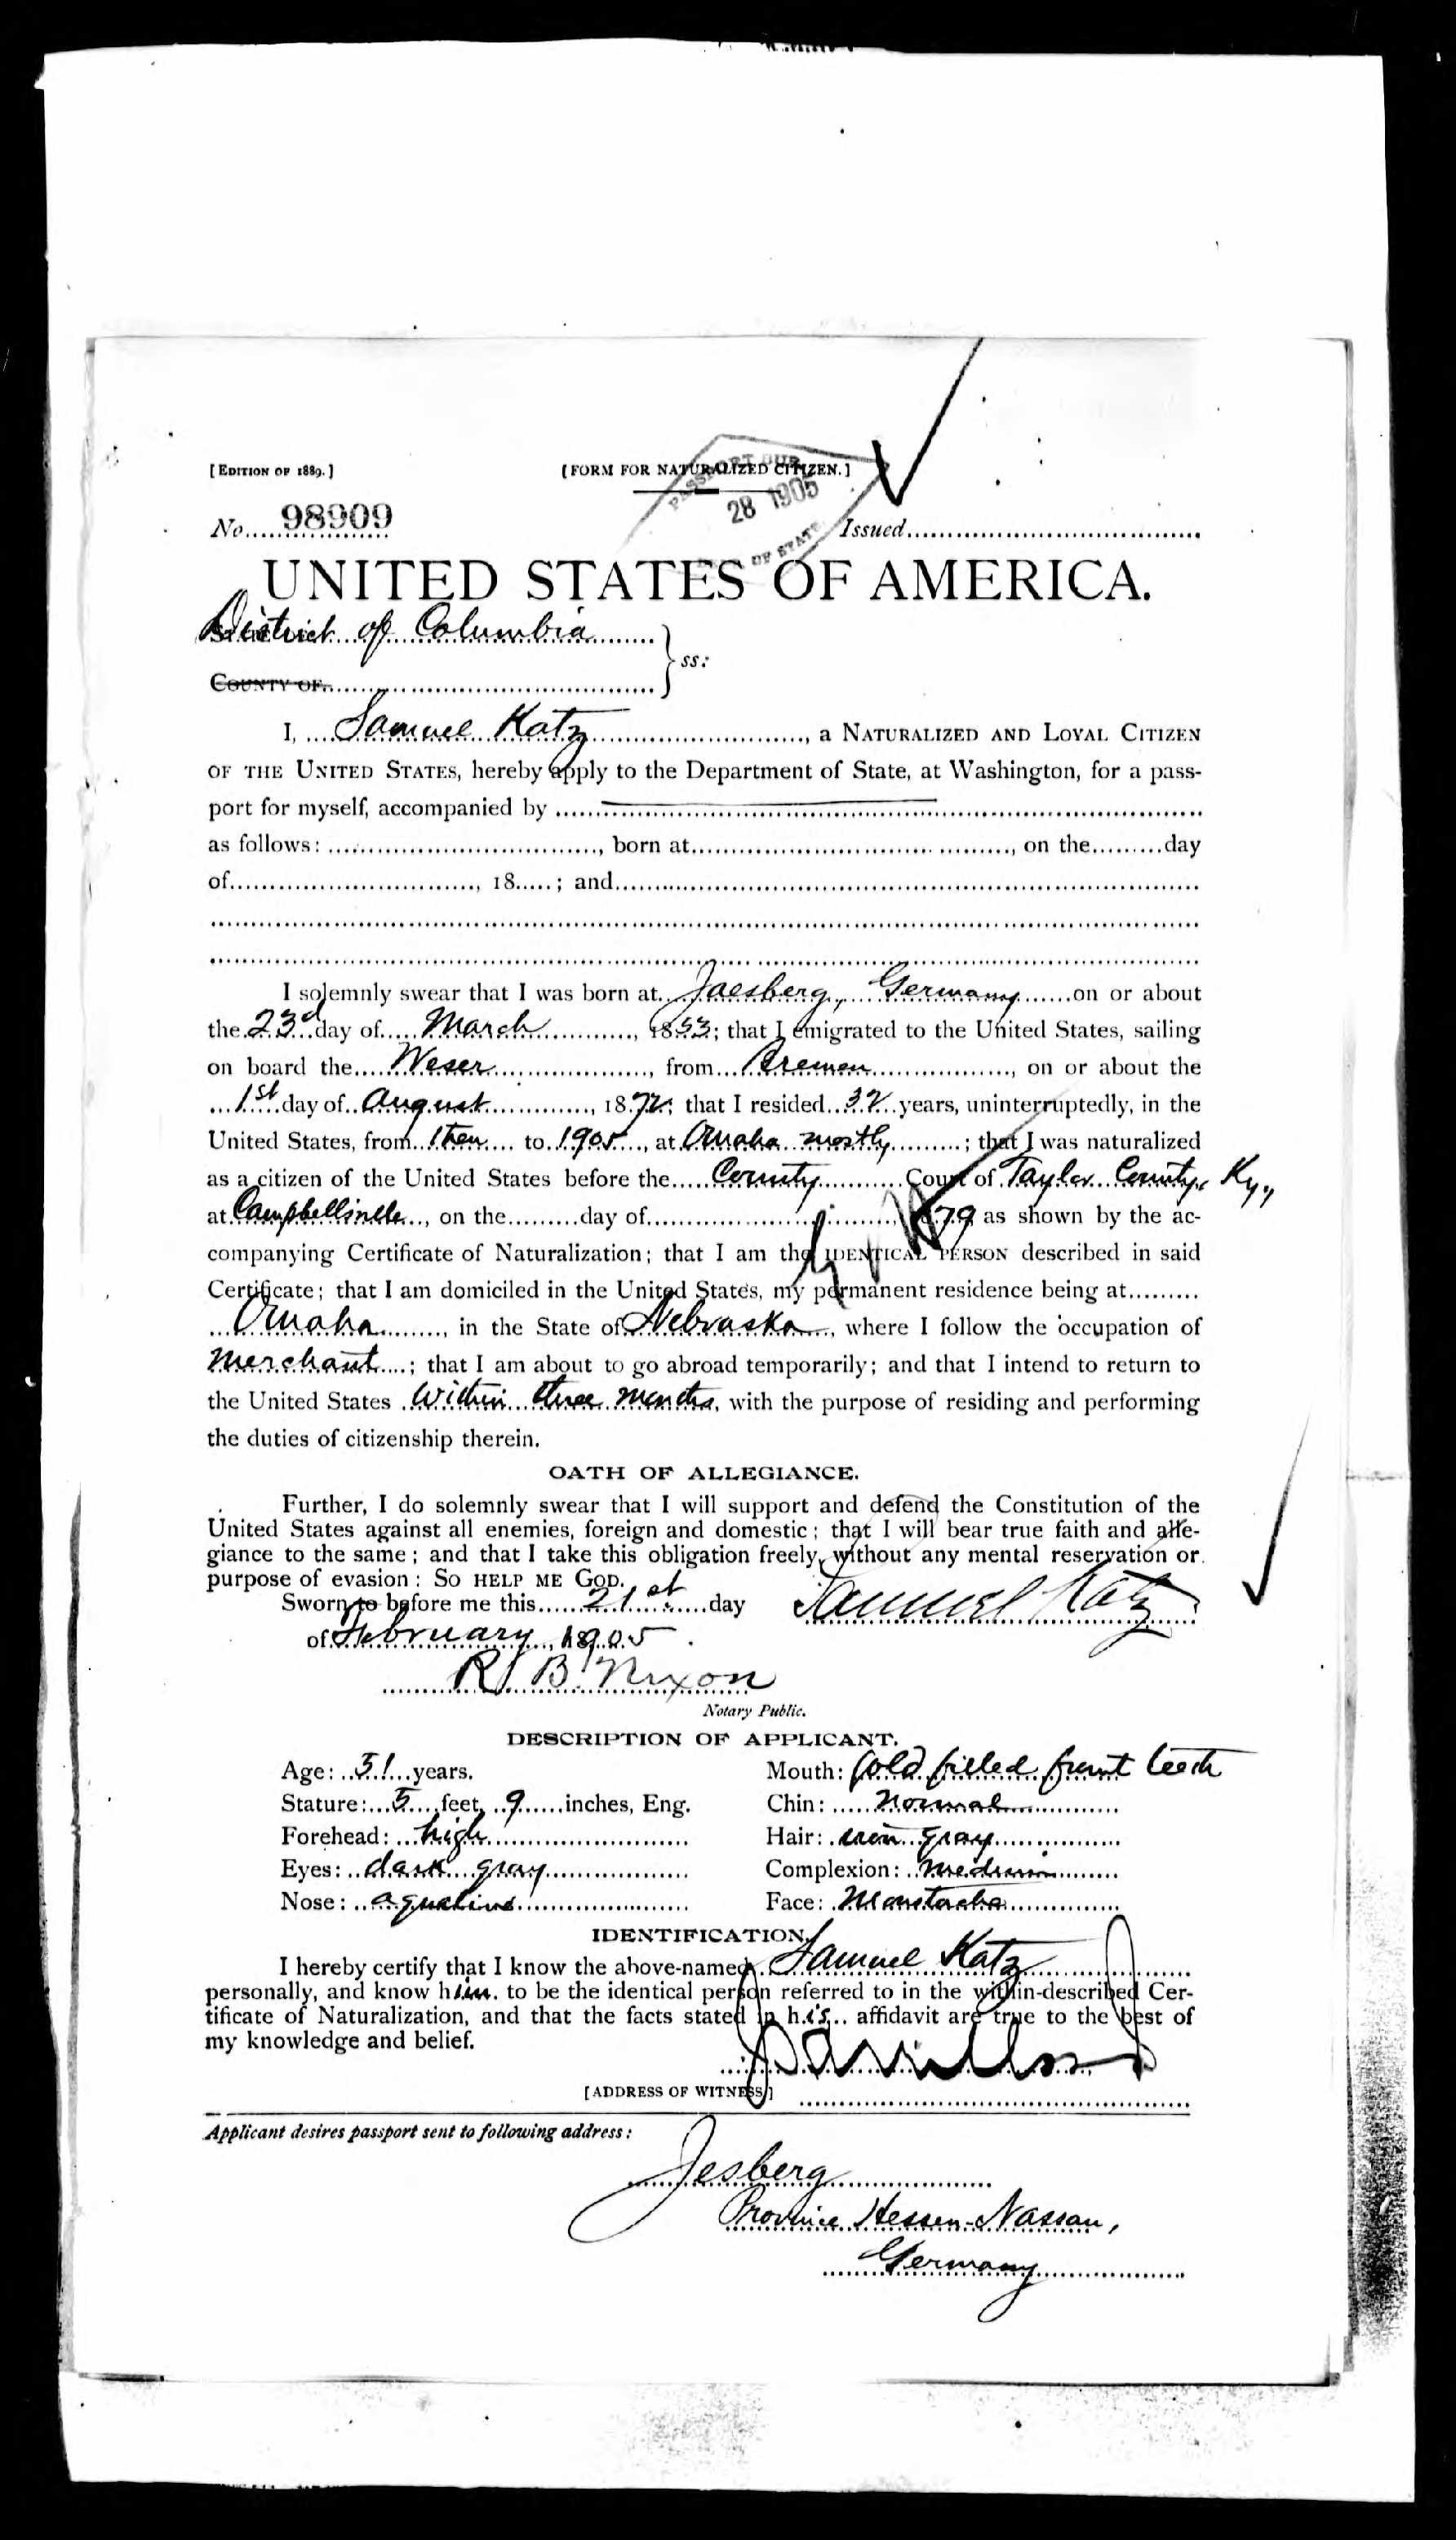 [EDITION OF 1889.]
[FORM FOR NATURALIZED CITIZEN.]
PASSPORT BUR
28 1905
OF STATE
No. 98909
Issued
UNITED STATES OF AMERICA.
District of Columbia
COUNTY OF
ss:
I, Samuel Katz, a NATURALIZED AND LOYAL CITIZEN
OF THE UNITED STATES, hereby apply to the Department of State, at Washington, for a pass-
port for myself, accompanied by
as follows: , born at , on the day
of , 18 ; and
I solemnly swear that I was born at Jaesberg, Germany on or about
the 23d day of March, 1853; that I emigrated to the United States, sailing
on board the Weser, from Bremen, on or about the
1st day of August, 1872; that I resided 32 years, uninterruptedly, in the
United States, from then to 1905, at Omaha mostly; that I was naturalized
as a citizen of the United States before the County Court of Taylor County, Ky.,
at Campbellsville, on the day of , 1879 as shown by the ac-
companying Certificate of Naturalization; that I am the IDENTICAL PERSON described in said
Certificate; that I am domiciled in the United States, my permanent residence being at
Omaha, in the State of Nebraska, where I follow the occupation of
Merchant; that I am about to go abroad temporarily; and that I intend to return to
the United States Within three months, with the purpose of residing and performing
the duties of citizenship therein.
OATH OF ALLEGIANCE.
Further, I do solemnly swear that I will support and defend the Constitution of the
United States against all enemies, foreign and domestic; that I will bear true faith and alle-
giance to the same; and that I take this obligation freely, without any mental reservation or
purpose of evasion: SO HELP ME GOD.
Sworn to before me this 21st day
Samuel Katz
of February, 1905.
R B Nixon
Notary Public.
DESCRIPTION OF APPLICANT.
Age: 51 years.
Mouth: Gold filled front teeth
Stature: 5 feet, 9 inches, Eng.
Chin: Normal
Forehead: high
Hair: iron gray
Eyes: dark gray
Complexion: Medium
Nose: aqueline
Face: Moustache
IDENTIFICATION.
I hereby certify that I know the above-named Samuel Katz
personally, and know him. to be the identical person referred to in the within-described Cer-
tificate of Naturalization, and that the facts stated in his affidavit are true to the best of
my knowledge and belief.
[ADDRESS OF WITNESS]
Applicant desires passport sent to following address:
Jesberg
Province Hessen-Nassau,
Germany